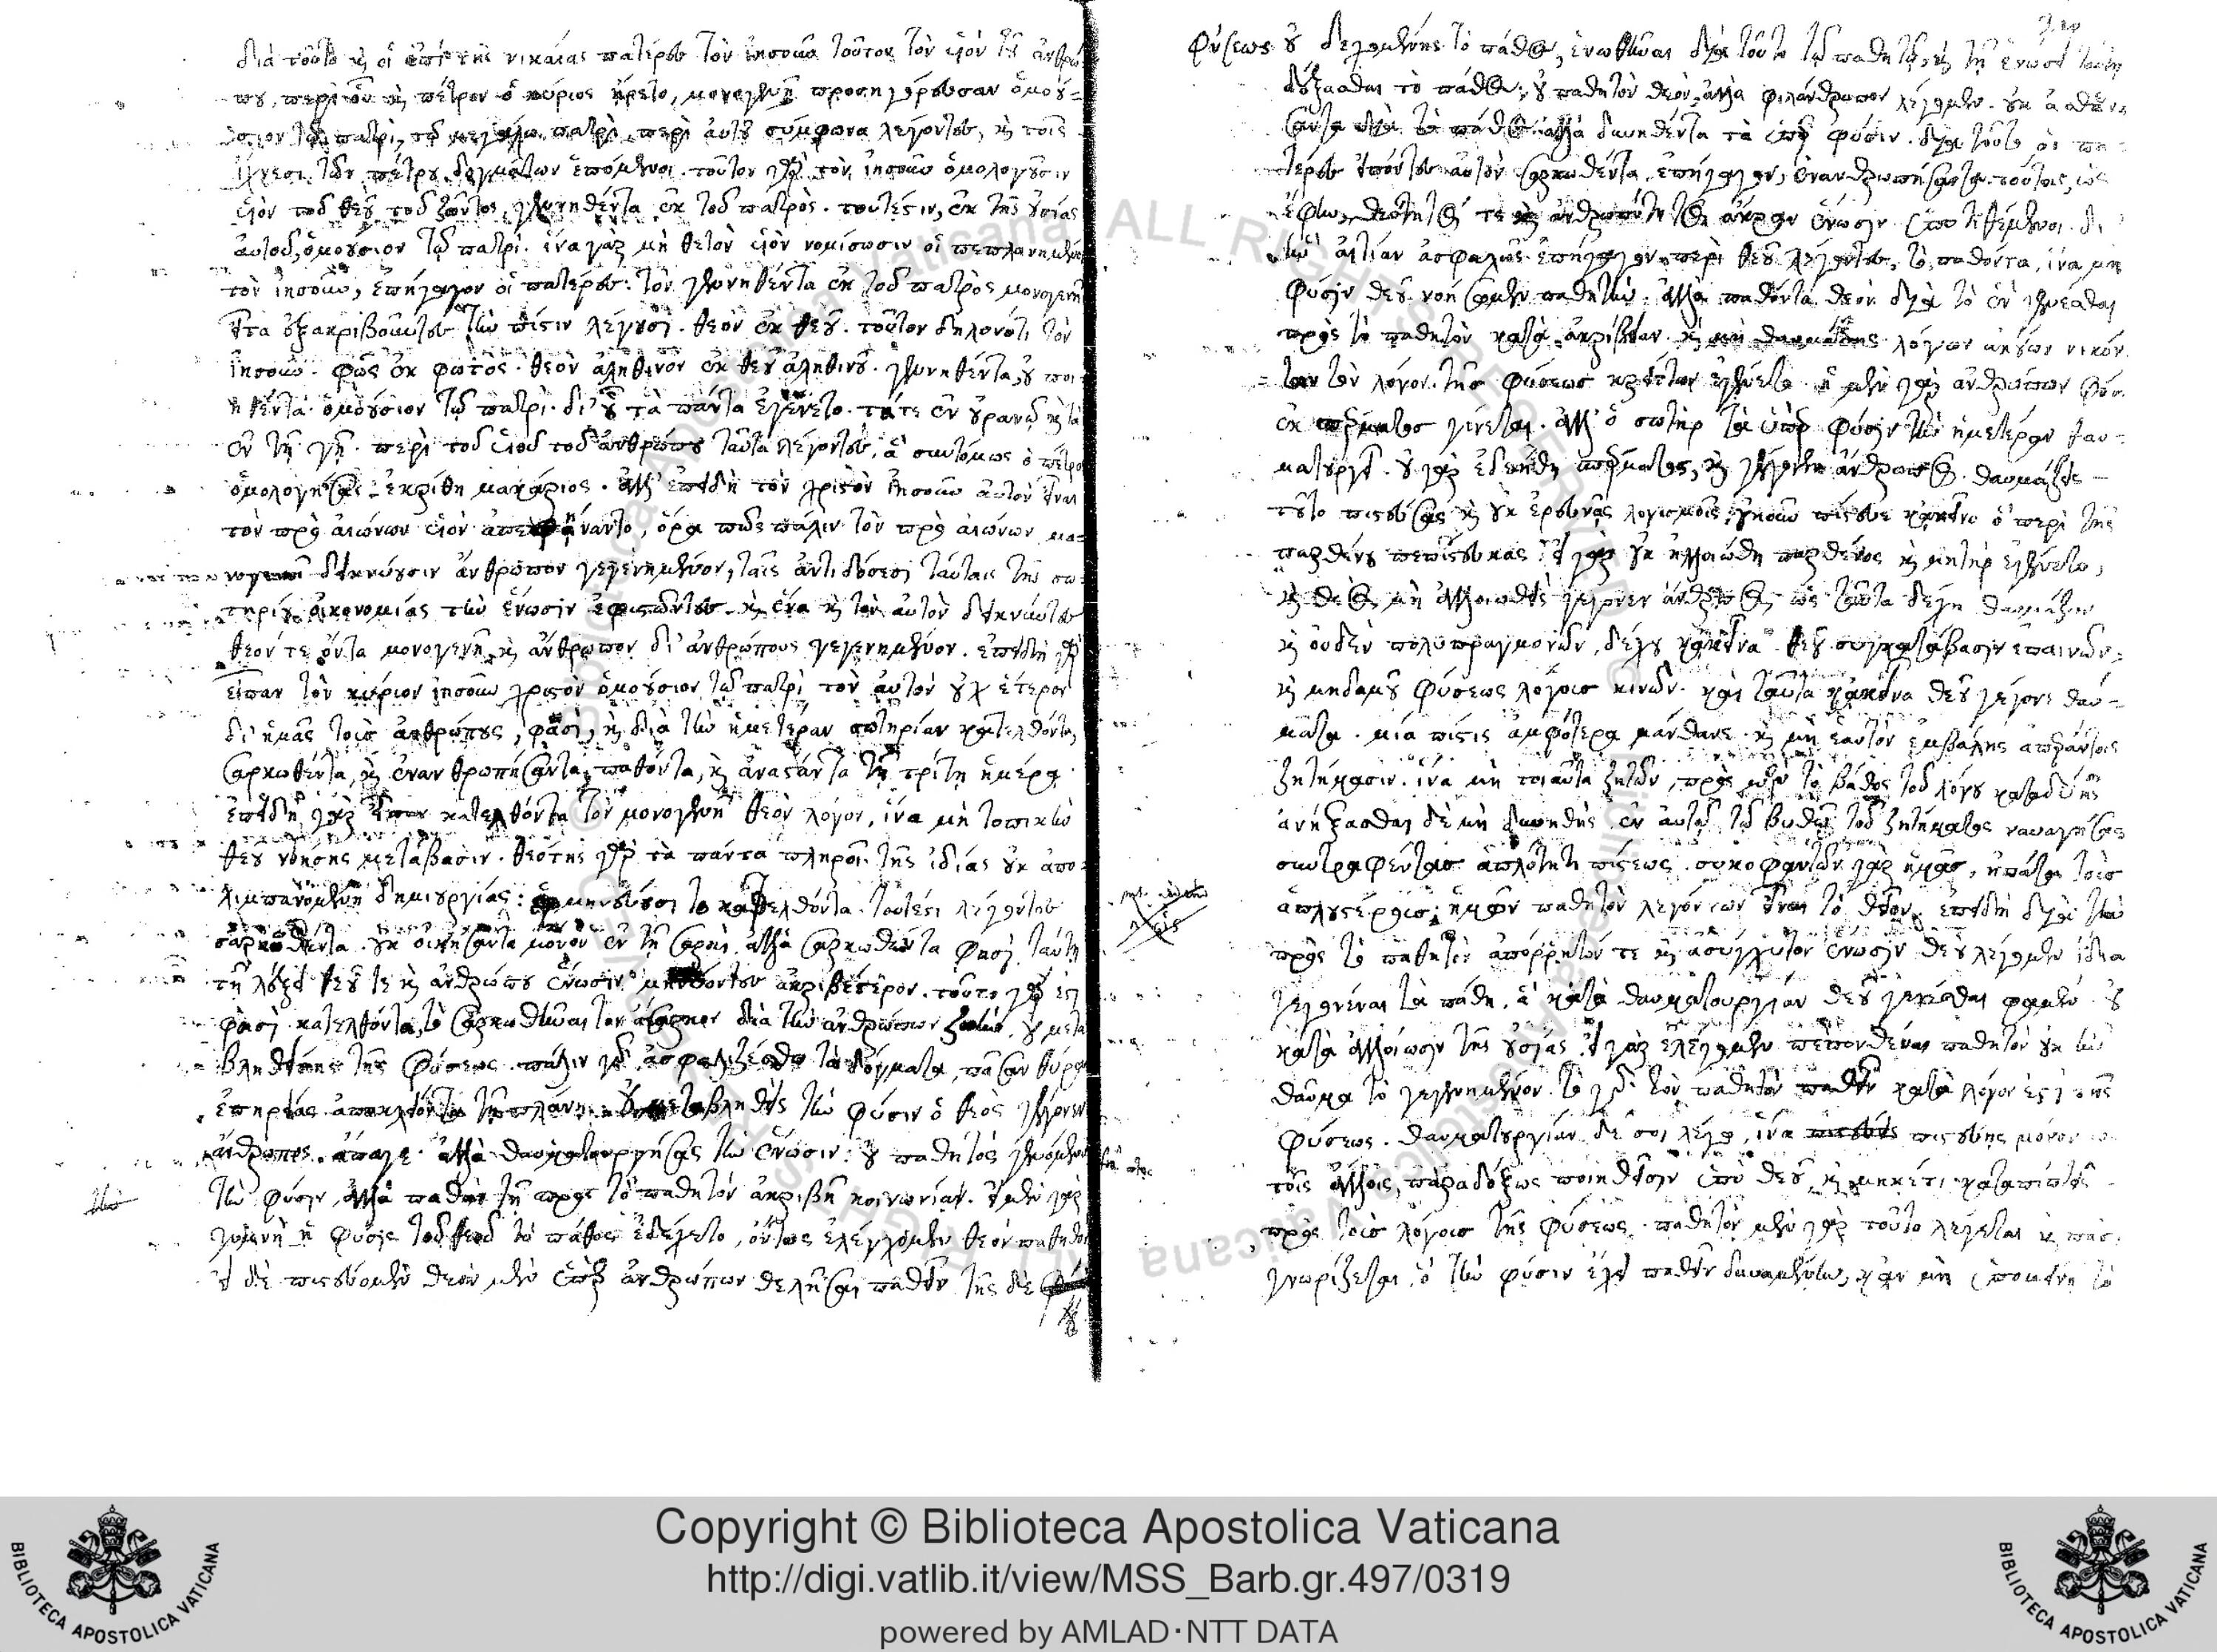 διὰ τοῦτο κ οἱ ἐπὶ τῆς νικαίας πατέρες τὸν ἰησοῦν τοῦτον τὸν υἱὸν τοῦ ἀνθρώ
που, περὶ οὗ κ πέτρον ὁ κύριος ἤρετο, μονογενῆ προσηγόρευσαν ὁμοού=
σιον τῷ πατρὶ, τῷ μεγάλῳ πατρὶ περὶ αὐτοῦ σύμφωνα λέγοντες, κ τοῖς
ἴχνεσι τῶν πέτρου δογμάτων ἑπόμενοι. τοῦτον γὰρ τὸν ἰησοῦν ὁμολογοῦσιν
υἱὸν τοῦ θεοῦ τοῦ ζῶντος, γεννηθέντα ἐκ τοῦ πατρὸς. τουτέστιν, ἐκ τῆς οὐσίας
αὐτοῦ, ὁμοούσιον τῷ πατρὶ. ἵνα γὰρ μὴ θετὸν υἱὸν νομίσωσιν οἱ πεπλανημένοι
τὸν ἰησοῦν, ἐπήγαγον οἱ πατέρες. τὸν γεννηθέντα ἐκ τοῦ πατρὸς μονογενῆ
εἶτα ἐξακριβοῦντες τὴν πίστιν λέγουσι. θεὸν ἐκ θεοῦ. τοῦτον δηλονότι τὸν
ἰησοῦν. φῶς ἐκ φωτὸς. θεὸν ἀληθινὸν ἐκ θεοῦ ἀληθινοῦ. γεννηθέντα, οὐ ποι
ηθέντα. ὁμοούσιον τῷ πατρὶ. δι' οὗ τὰ πάντα ἐγένετο. τά τε ἐν οὐρανῷ κ τὰ
ἐν τῇ γῇ. περὶ τοῦ υἱοῦ τοῦ ἀνθρώπου ταῦτα λέγοντες, ἃ συντόμως ὁ πέτρος
ὁμολογήσας ἐκρίθη μακάριος. ἀλλ' ἐπειδὴ τὸν χριστὸν ἰησοῦν αὐτὸν εἶναι
τὸν πρὸ αἰώνων υἱὸν ἀπεφήναντο, ὅρα πῶς πάλιν τὸν πρὸ αἰώνων μο=
νογενῆ δεικνύουσιν ἄνθρωπον γεγενημένον, ταῖς ἀντιδόσεσι ταύταις τῆς σω
τηρίου οἰκονομίας τὴν ἕνωσιν ἐφιστῶντες. κ ἕνα κ τὸν αὐτὸν δεικνύντες
θεόν τε ὄντα μονογενῆ, κ ἄνθρωπον δι' ἀνθρώπους γεγενημένον. ἐπειδὴ γὰρ
εἶπαν τὸν κύριον ἰησοῦν χριστὸν ὁμοούσιον τῷ πατρὶ τὸν αὐτὸν οὐχ ἕτερον
δι' ἡμᾶς τοὺς ἀνθρώπους, φασὶ, κ διὰ τὴν ἡμετέραν σωτηρίαν κατελθόντα,
σαρκωθέντα, κ ἐνανθρωπήσαντα, παθόντα, κ ἀναστάντα τῇ τρίτῃ ἡμέρᾳ.
ἐπειδὴ γὰρ εἶπον κατελθόντα τὸν μονογενῆ θεὸν λόγον, ἵνα μὴ τοπικὴν
θεοῦ νοήσῃς μετάβασιν. θεότης γὰρ τὰ πάντα πληροῖ τῆς ἰδίας οὐκ ἀπο
λιμπανομένη δημιουργίας: ἑρμηνεύουσι τὸ κατελθόντα. τουτέστι λέγοντες
σαρκωθέντα. οὐκ οἰκήσαντα μόνον ἐν τῇ σαρκὶ, ἀλλὰ σαρκωθέντα φασὶ, ταύτῃ
τῇ λέξει θεοῦ τε κ ἀνθρώπου ἕνωσιν μηνύοντες ἀκριβέστερον. τοῦτο γάρ ἐστι
φασὶ κατελθόντα, τὸ σαρκωθῆναι τὸν ἄσαρκον διὰ τὴν ἀνθρώπων ζωὴν. οὐ μετα
βληθείσης τῆς φύσεως. πάλιν γὰρ ἀσφαλιζέσθω τὰ δόγματα, πᾶσαν θύραν
ἐπηρείας ἀποκλείοντα τῇ πλάνῃ. οὐ μεταβληθεὶς τὴν φύσιν ὁ θεὸς γέγονεν
ἄνθρωπος. ἄπαγε. ἀλλὰ θαυματουργήσας τὴν ἕνωσιν: οὐ παθητὸς γενόμενος
τὴν φύσιν, ἀλλὰ παθὼν τῇ πρὸς τὸ παθητὸν ἀκριβῆ κοινωνίαν. εἰ μὲν γὰρ
γυμνὴ ἡ φύσις τοῦ θεοῦ τὸ πάθος ἐδέχετο, ὄντως ἐλέγχομεν θεὸν παθητὸν
εἰ δὲ πιστεύομεν θεὸν μὲν ὑπὲρ ἀνθρώπων θελῆσαι παθεῖν τῆς δὲ
φύσεως οὐ δεχομένης τὸ πάθος, ἑνωθῆναι διὰ τοῦτο τῷ παθητῷ, κ τῇ ἑνώσει ταύτῃ
δέξασθαι τὸ πάθος, οὐ παθητὸν θεὸν, ἀλλὰ φιλάνθρωπον λέγομεν. οὐκ ἀσθενή
σαντα διὰ τὸ πάθος, ἀλλὰ δυνηθέντα τὰ ὑπὲρ φύσιν. διὰ τοῦτο οἱ πα
τέρες εἰπόντες αὐτὸν σαρκωθέντα, ἐπήγαγον, ἐνανθρωπήσαντα. τούτοις, ὡς
ἔφην, θεότητός τε κ ἀνθρωπότητος ἄκραν ἕνωσιν ὑποτιθέμενοι. δι
ἣν αἰτίαν ἀσφαλῶς ἐπήγαγον περὶ θεοῦ λέγοντες, τὸ παθόντα, ἵνα μὴ
φύσιν θεοῦ νοήσωμεν παθητὴν. ἀλλὰ παθόντα θεὸν διὰ τὸ ἑνωθῆναι
πρὸς τὸ παθητὸν κατὰ ἀκρίβειαν. κ μὴ θαυμάσῃς λόγων ἀκούων νικών
των τὸν λόγον τῆς φύσεως κρεῖττον ἐγένετο. ἡ μὲν γὰρ ἀνθρώπων φύσις
ἐκ σπέρματος γίνεται. ἀλλ' ὁ σωτὴρ τὰ ὑπὲρ φύσιν τὴν ἡμετέραν θαυ=
ματουργεῖ. οὐ γὰρ ἐδεήθη σπέρματος, κ γέγονεν ἄνθρωπος. θαυμάζεις
τοῦτο πιστεύσας κ οὐκ ἐρευνᾷς λογισμοῖς; οὐκοῦν πίστευε κἀκεῖνο ὃ περὶ τῆς
παρθένου πεπίστευκας. εἰ γὰρ οὐκ ἠλλοιώθη παρθένος κ μήτηρ ἐγένετο,
κ θεὸς μὴ ἀλλοιωθεὶς γέγονεν ἄνθρωπος, ὡς ταῦτα δέχῃ θαυμάζων
κ οὐδὲν πολυπραγμονῶν, δέχου κἀκεῖνα θεοῦ συγκατάβασιν ἐπαινῶν=
κ μηδαμοῦ φύσεως λόγοις κινῶν. καὶ ταῦτα κἀκεῖνα θεοῦ γέγονε θαύ=
ματα. μία πίστις ἀμφότερα μάνθανε. κ μὴ ἑαυτὸν ἐμβάλῃς ἀπεράντοις
ζητήμασιν. ἵνα μὴ τοιαῦτα ζητῶν, πρὸς μὲν τὸ βάθος τοῦ λόγου καταδύῃς
ἀνήξασθαι δὲ μὴ δυνηθῇς ἐν αὐτῷ τῷ βυθῷ τοῦ ζητήματος ναυαγήσας
συντραφέντας ἁπλότητι πίστεως. συκοφαντῶν γὰρ ἡμᾶς, ἠπάτα τοὺς
ἁπλουστέρους, ἡμῶν παθητὸν λεγόντων εἶναι τὸ θεῖον, ἐπειδὴ διὰ τὴν
πρὸς τὸ παθητὸν ἀπόρρητόν τε κ ἀσύγχυτον ἕνωσιν θεοῦ λέγομεν ἴδια
γεγονέναι τὰ πάθη, ἃ κατὰ θαυματουργίαν θεοῦ γενέσθαι φαμέν. οὐ
κατὰ ἀλλοίωσιν τῆς οὐσίας. εἰ γὰρ ἐλέγομεν πεπονθέναι παθητὸν οὐκ ἦν
θαῦμα τὸ γεγενημένον. τὸ γὰρ τὸν παθητὸν παθεῖν κατὰ λόγον ἐστὶ τῆς
φύσεως. θαυματουργίαν δέ σοι λέγω, ἵνα πιστεύῃς μόνον ὡς
τοῖς ἄλλοις, παραδόξως ποιηθεῖσιν ὑπὸ θεοῦ, κ μηκέτι καταπίπτῃς
πρὸς τοὺς λόγους τῆς φύσεως. παθητὸν μὲν γὰρ τοῦτο λέγεται κ πᾶσι
γνωρίζεται, ὃ τὴν φύσιν ἔχει παθεῖν δυναμένην, κἂν μὴ ὑπομένῃ τὸ
Copyright © Biblioteca Apostolica Vaticana
http://digi.vatlib.it/view/MSS_Barb.gr.497/0319
powered by AMLAD·NTT DATA
BIBLIOTECA APOSTOLICA VATICANA
BIBLIOTECA APOSTOLICA VATICANA